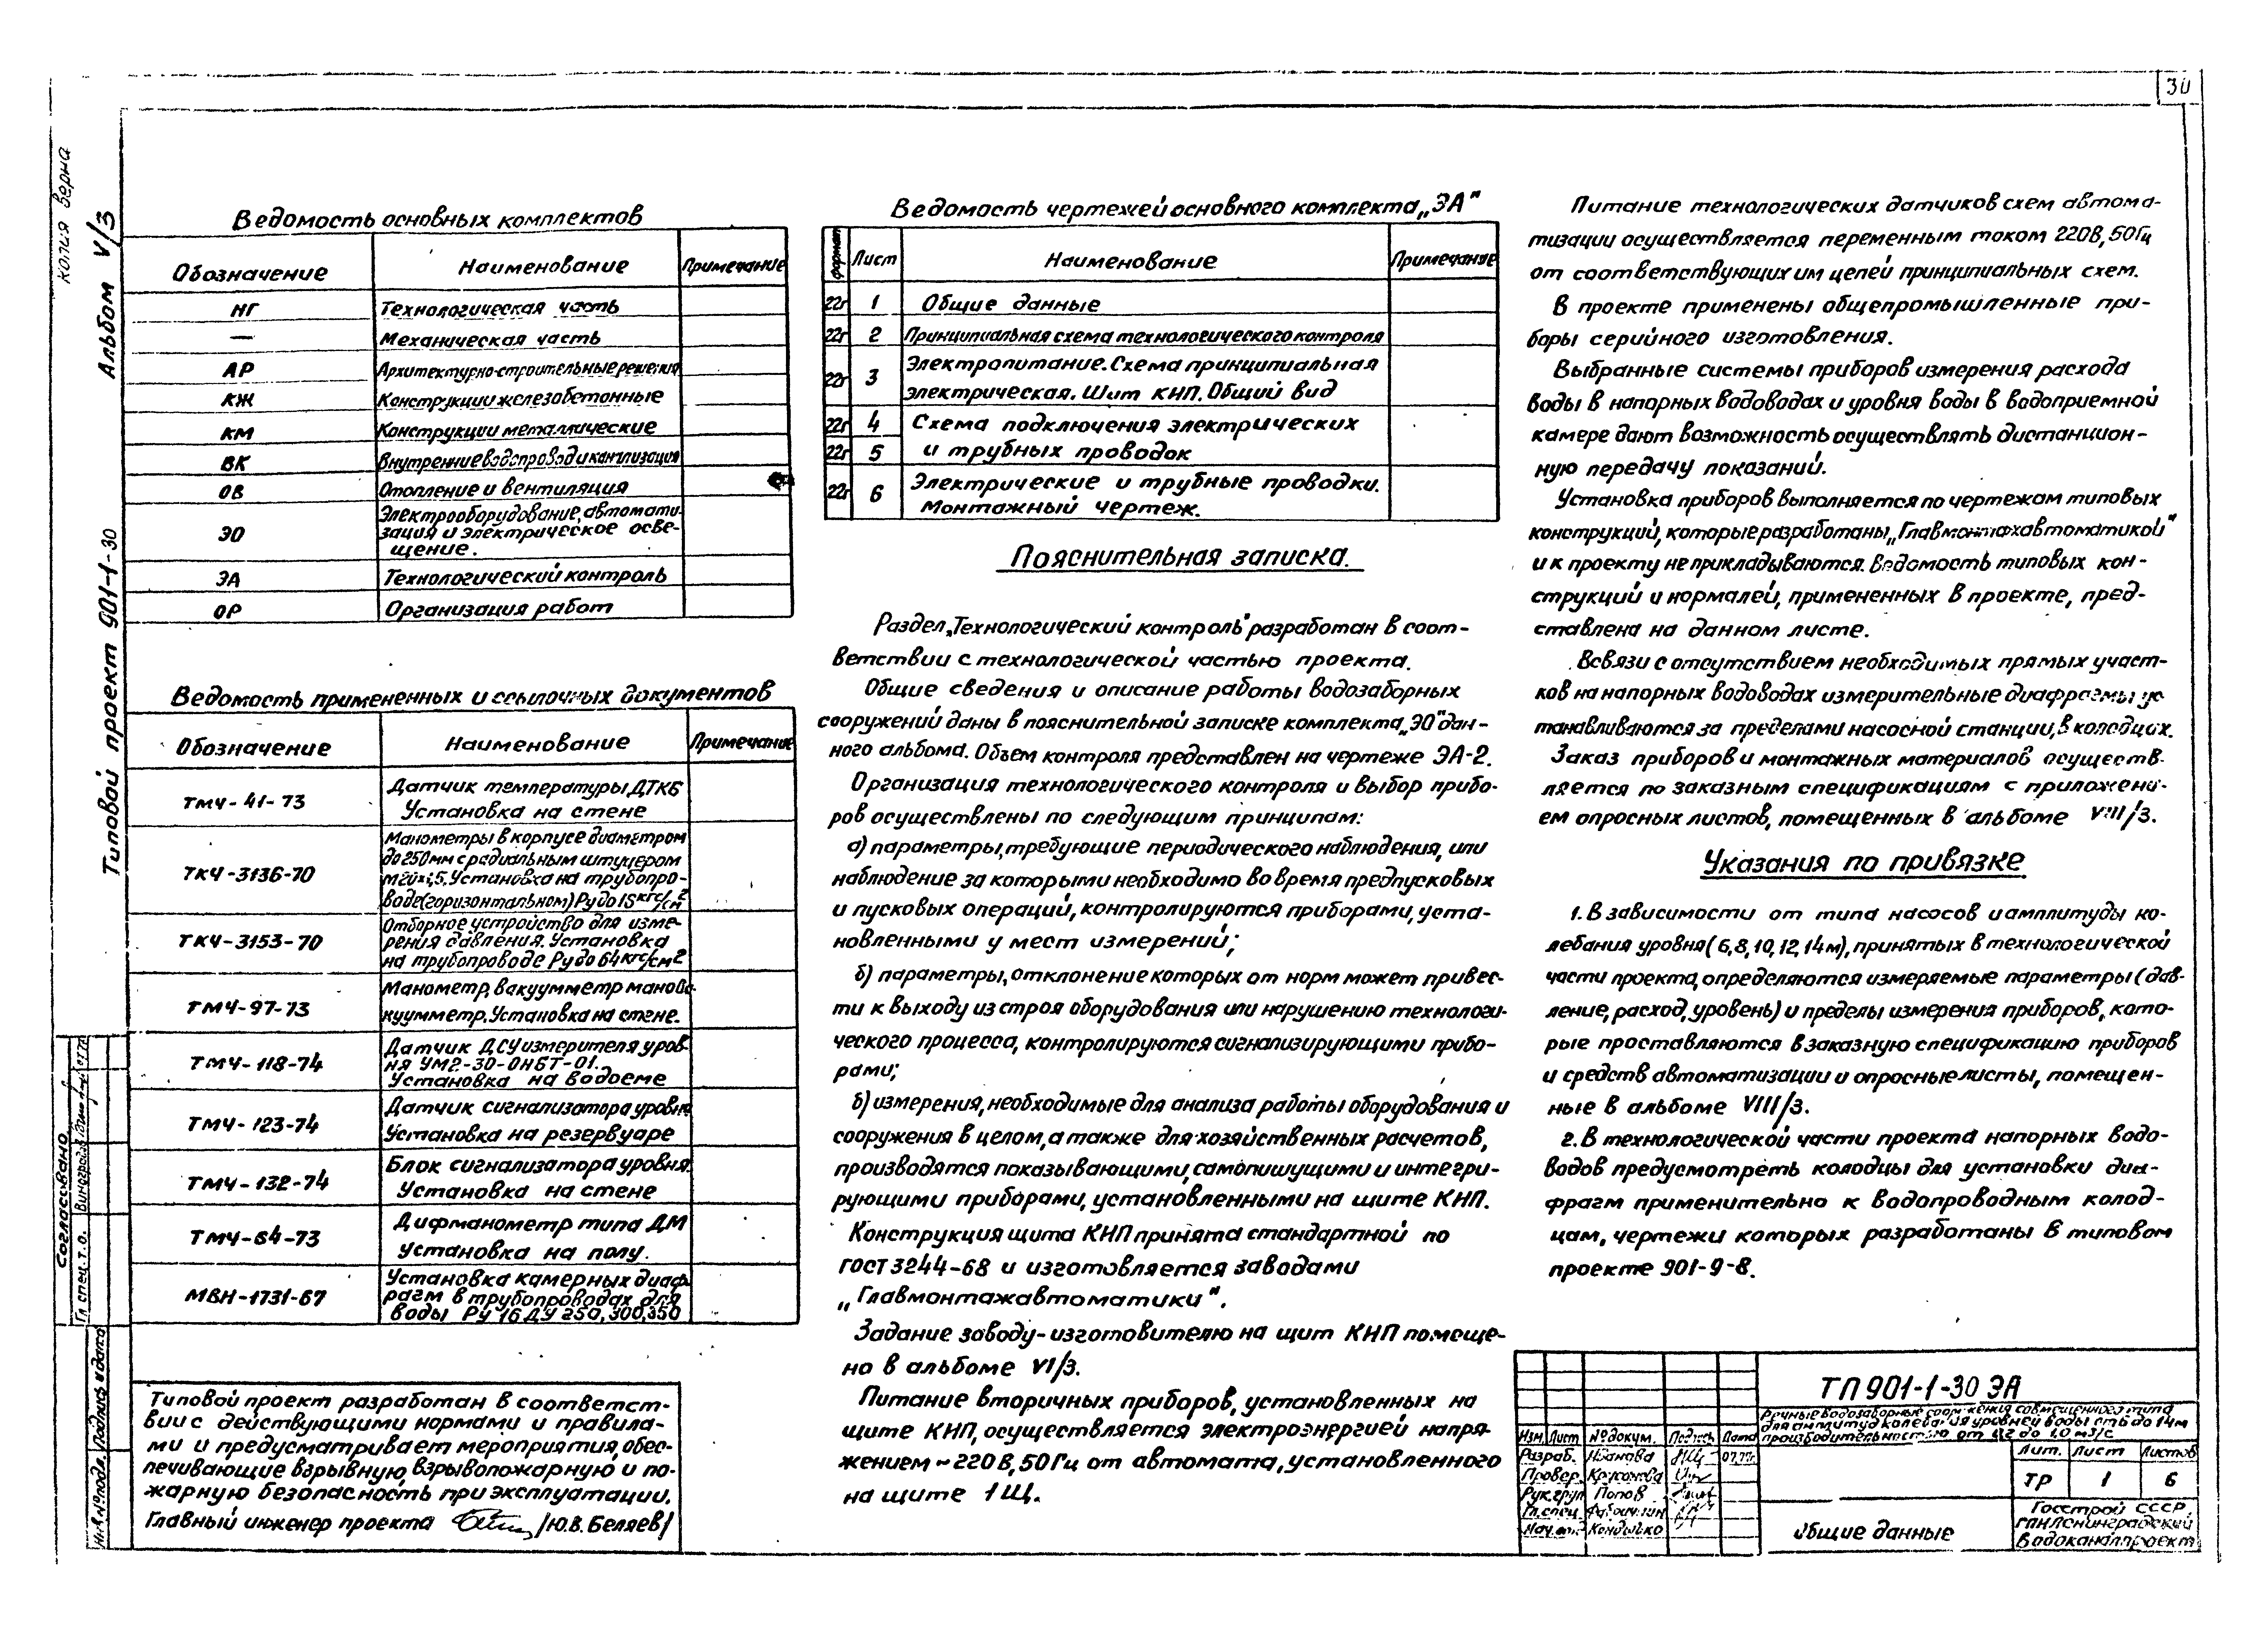 30
Копия верна
Альбом V/3
Типовой проект 901-1-30
Ведомость основных комплектов
Обозначение Наименование Примечание
НГ Технологическая часть
— Механическая часть
АР Архитектурно-строительные решения
КЖ Конструкции железобетонные
КМ Конструкции металлические
ВК Внутренние водопровод и канализация
ОВ Отопление и вентиляция
ЭО Электрооборудование, автомати-
зация и электрическое осве-
щение.
ЭА Технологический контроль
ОР Организация работ
Ведомость примененных и ссылочных документов
Обозначение Наименование Примечание
ТМЧ-41-73 Датчик температуры ДТКБ
Установка на стене
ТКЧ-3136-70 Манометры в корпусе диаметром
до 250мм с радиальным штуцером
М20×1,5. Установка на трубопро-
воде (горизонтальном) Ру до 15 кгс/см²
ТКЧ-3153-70 Отборное устройство для изме-
рения давления. Установка
на трубопроводе Ру до 64 кгс/см²
ТМЧ-97-73 Манометр, вакуумметр манова-
куумметр. Установка на стене.
ТМЧ-118-74 Датчик ДСУ измерителя уров-
ня УМ2-30-ОНБТ-01.
Установка на водоеме
ТМЧ-123-74 Датчик сигнализатора уровня
Установка на резервуаре
ТМЧ-132-74 Блок сигнализатора уровня.
Установка на стене
ТМЧ-64-73 Дифманометр типа ДМ
Установка на полу.
МВН-1731-67 Установка камерных диаф-
рагм в трубопроводах для
воды Ру 16 Ду 250, 300, 350
Типовой проект разработан в соответст-
вии с действующими нормами и правила-
ми и предусматривает мероприятия, обес-
печивающие взрывную, взрывопожарную и по-
жарную безопасность при эксплуатации.
Главный инженер проекта /Ю.В. Беляев/
Согласовано
Гл. спец. т.о.
Инв.№ подл. Подпись и дата
Ведомость чертежей основного комплекта „ЭА"
формат Лист Наименование Примечание
22г 1 Общие данные
22г 2 Принципиальная схема технологического контроля
22г 3 Электропитание. Схема принципиальная
электрическая. Щит КНП. Общий вид
22г 4 Схема подключения электрических
22г 5 и трубных проводок
22г 6 Электрические и трубные проводки.
Монтажный чертеж.
Пояснительная записка.
Раздел „Технологический контроль" разработан в соот-
ветствии с технологической частью проекта.
Общие сведения и описание работы водозаборных
сооружений даны в пояснительной записке комплекта „ЭО" дан-
ного альбома. Объем контроля представлен на чертеже ЭА-2.
Организация технологического контроля и выбор прибо-
ров осуществлены по следующим принципам:
а) параметры, требующие периодического наблюдения, или
наблюдение за которыми необходимо во время предпусковых
и пусковых операций, контролируются приборами, уста-
новленными у мест измерений;
б) параметры, отклонение которых от норм может привес-
ти к выходу из строя оборудования или нарушению технологи-
ческого процесса, контролируются сигнализирующими прибо-
рами;
в) измерения, необходимые для анализа работы оборудования и
сооружения в целом, а также для хозяйственных расчетов,
производятся показывающими, самопишущими и интегри-
рующими приборами, установленными на щите КНП.
Конструкция щита КНП принята стандартной по
ГОСТ 3244-68 и изготовляется заводами
„Главмонтажавтоматики".
Задание заводу-изготовителю на щит КНП помеще-
но в альбоме VI/3.
Питание вторичных приборов, установленных на
щите КНП, осуществляется электроэнергией напря-
жением ~220В, 50Гц от автомата, установленного
на щите 1Щ.
Питание технологических датчиков схем автома-
тизации осуществляется переменным током 220В, 50Гц
от соответствующих им цепей принципиальных схем.
В проекте применены общепромышленные при-
боры серийного изготовления.
Выбранные системы приборов измерения расхода
воды в напорных водоводах и уровня воды в водоприемной
камере дают возможность осуществлять дистанцион-
ную передачу показаний.
Установка приборов выполняется по чертежам типовых
конструкций, которые разработаны „Главмонтажавтоматикой"
и к проекту не прикладываются. Ведомость типовых кон-
струкций и нормалей, примененных в проекте, пред-
ставлена на данном листе.
В связи с отсутствием необходимых прямых участ-
ков на напорных водоводах измерительные диафрагмы ус-
танавливаются за пределами насосной станции, в колодцах.
Заказ приборов и монтажных материалов осуществ-
ляется по заказным спецификациям с приложени-
ем опросных листов, помещенных в альбоме VIII/3.
Указания по привязке
1. В зависимости от типа насосов и амплитуды ко-
лебания уровня (6, 8, 10, 12, 14м), принятых в технологической
части проекта, определяются измеряемые параметры (дав-
ление, расход, уровень) и пределы измерения приборов, кото-
рые проставляются в заказную спецификацию приборов
и средств автоматизации и опросные листы, помещен-
ные в альбоме VIII/3.
2. В технологической части проекта напорных водо-
водов предусмотреть колодцы для установки диа-
фрагм применительно к водопроводным колод-
цам, чертежи которых разработаны в типовом
проекте 901-9-8.
ТП 901-1-30 ЭА
Речные водозаборные сооружения совмещенного типа
для амплитуд колебания уровней воды от 6 до 14м
производительностью от 0,2 до 1,0 м3/с
Изм. Лист № докум. Подпись Дата
Разраб. Иванова
Провер.
Рук.груп Попов
Гл.спец.
Нач.
Лит. Лист Листов
ТР 1 6
Общие данные
Госстрой СССР
ГПИ Ленинградский
Водоканалпроект